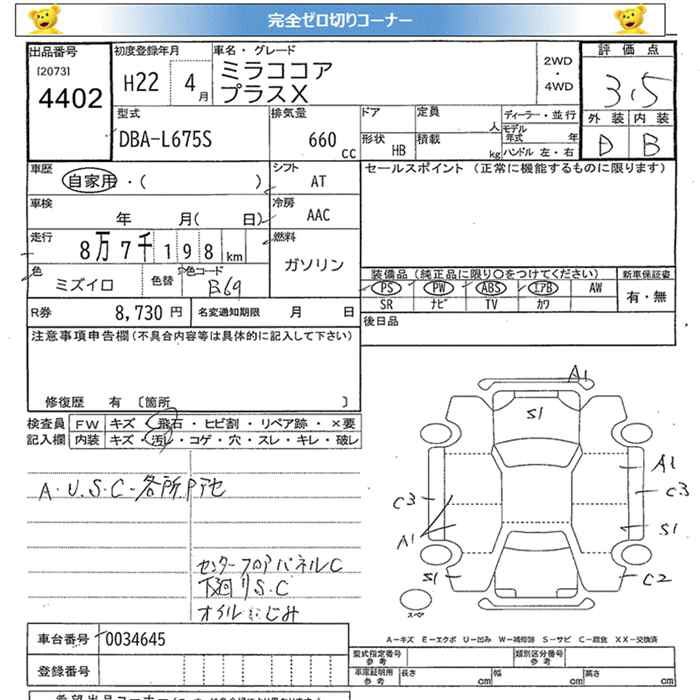 完全ゼロ切りコーナー
出品番号
[2073]
4402
初度登録年月
H22 4月
車名・グレード
ミラココア
プラスX
2WD
・
4WD
評価点
3.5
外装 内装
D B
型式
DBA-L675S
排気量
660 cc
ドア
形状 HB
定員 人
積載 kg
ディーラー・並行
モデル年式 年
ハンドル 左・右
車歴
自家用・( )
シフト
AT
セールスポイント (正常に機能するものに限ります)
車検
年 月( 日)
冷房
AAC
走行
8万7千198km
燃料
ガソリン
色
ミズイロ
色替
色コード
B69
装備品 (純正品に限り○をつけてください)
PS PW ABS エアB AW
SR ナビ TV カワ
新車保証書
有・無
R券 8,730円
名変通知期限 月 日
後日品
注意事項申告欄 (不具合内容等は具体的に記入して下さい)
修復歴 有 [箇所 ]
検査員 FW キズ・飛石・ヒビ割・リペア跡・×要
記入欄 内装 キズ・汚れ・コゲ・穴・スレ・キレ・破レ
A.U.S.C-各所Pアセ
センターフロアパネルC
下廻りS.C
オイルにじみ
A1
S1
A1
C3
C3
A1
S1
S1
C2
スペア
A-キズ E-エクボ U-凹み W-補修跡 S-サビ C-腐食 XX-交換済
車台番号 0034645
登録番号
型式指定番号
参考
類別区分番号
参考
車庫証明用
参考
長さ cm
幅 cm
高さ cm
希望出品コーナー